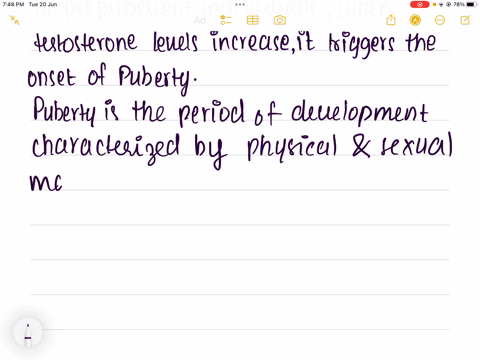 7:48 PM Tue 20 Jun
78%
Aa
prepubescent individuals, when
testosterone levels increase, it triggers the
onset of Puberty.
Puberty is the period of development
characterized by physical & sexual